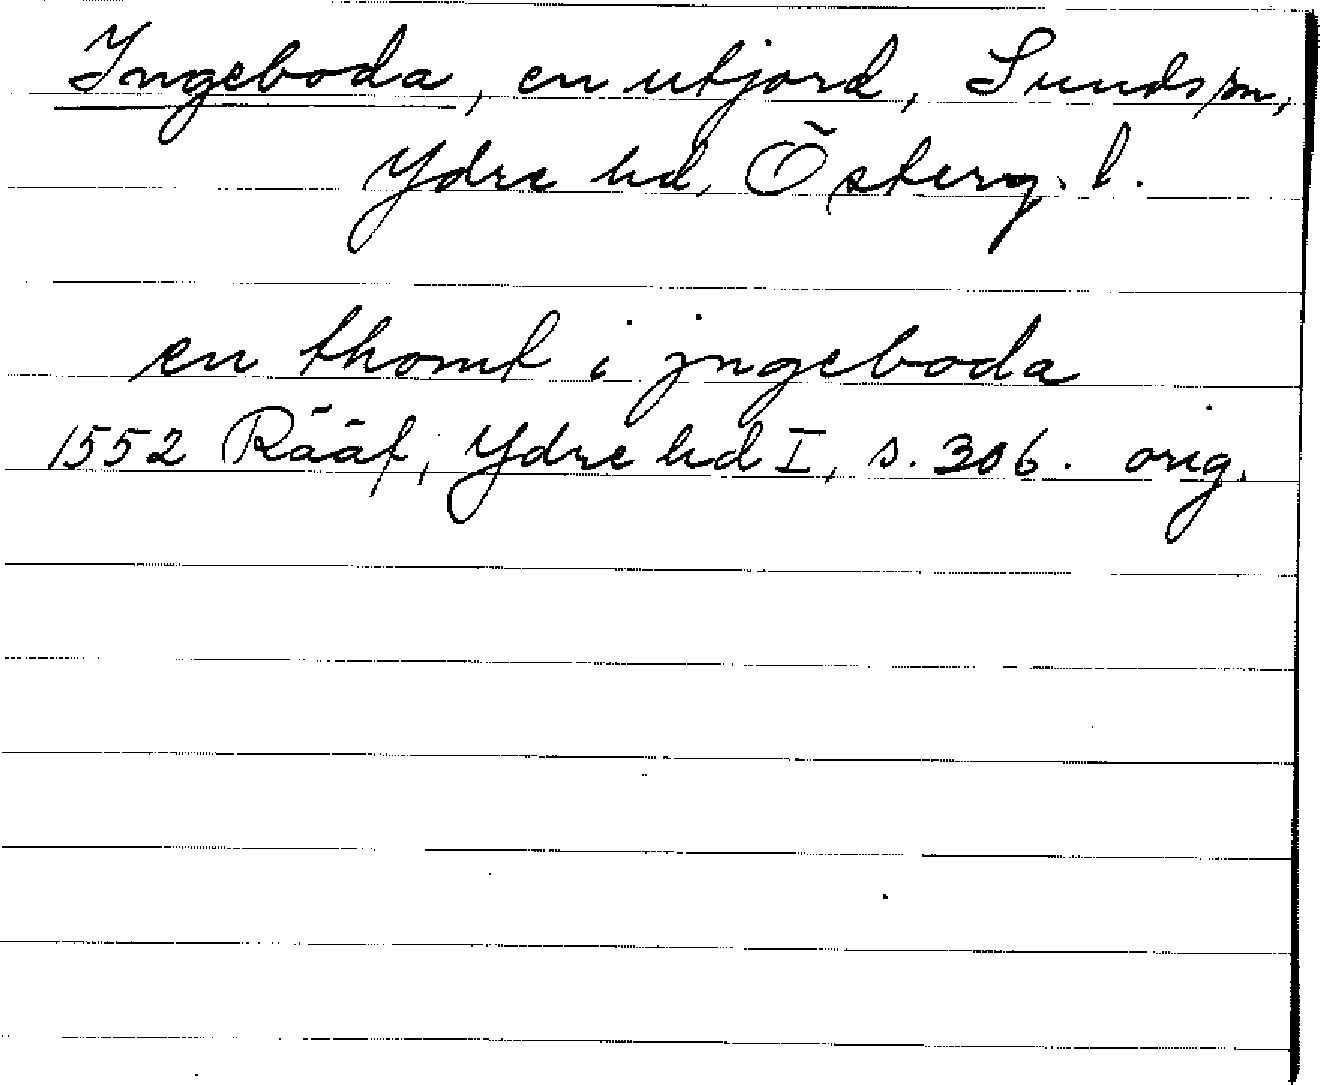 Ingeboda, en utjord, Sunds sn,
Ydre hd, Österg. l.
en thomt i jngeboda
1552 Rääf, Ydre hd I, s. 306. orig.